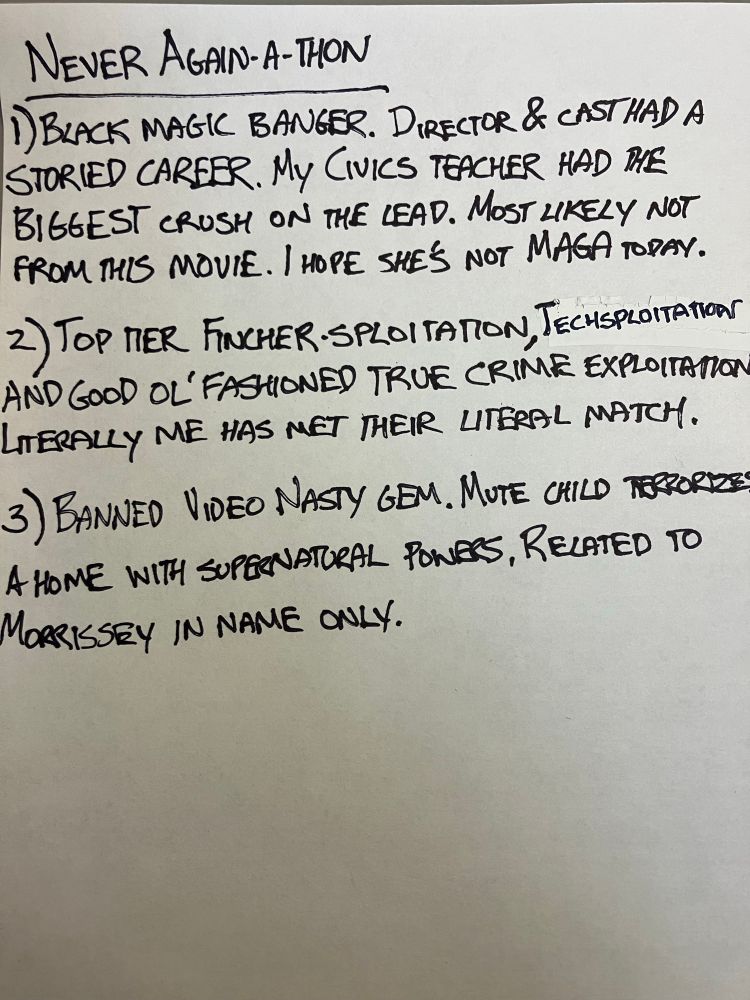 NEVER AGAIN-A-THON
1) BLACK MAGIC BANGER. DIRECTOR & CAST HAD A
STORIED CAREER. MY CIVICS TEACHER HAD THE
BIGGEST CRUSH ON THE LEAD. MOST LIKELY NOT
FROM THIS MOVIE. I HOPE SHE'S NOT MAGA TODAY.
2) TOP TIER FINCHER-SPLOITATION, TECHSPLOITATION
AND GOOD OL' FASHIONED TRUE CRIME EXPLOITATION
LITERALLY ME HAS MET THEIR LITERAL MATCH.
3) BANNED VIDEO NASTY GEM. MUTE CHILD TERRORIZES
A HOME WITH SUPERNATURAL POWERS, RELATED TO
MORRISSEY IN NAME ONLY.